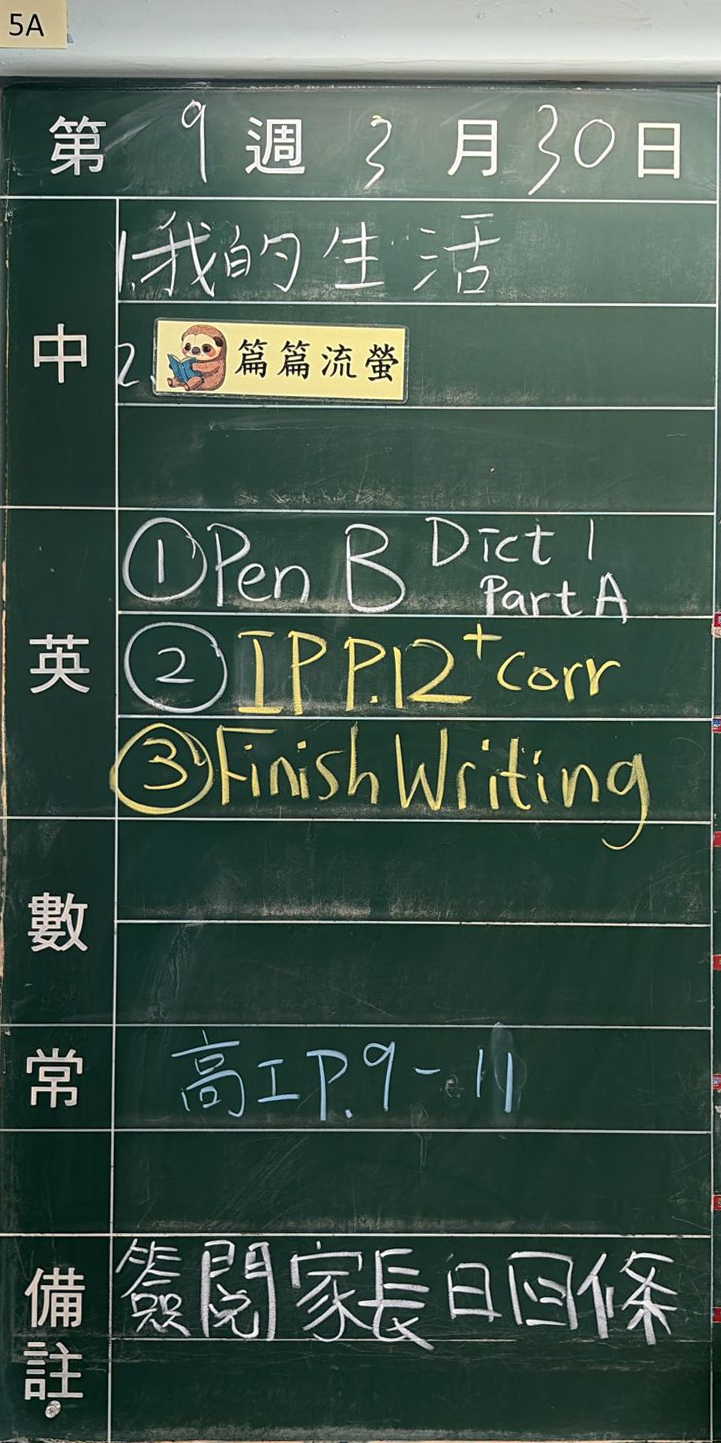 5A
第 9 週 3 月 30 日
中
1. 我的生活
2. 篇篇流螢
英
① Pen B Dict 1 Part A
② IP P.12 + corr
③ Finish Writing
數
常
高工 P.9-11
備註
簽閱家長日回條